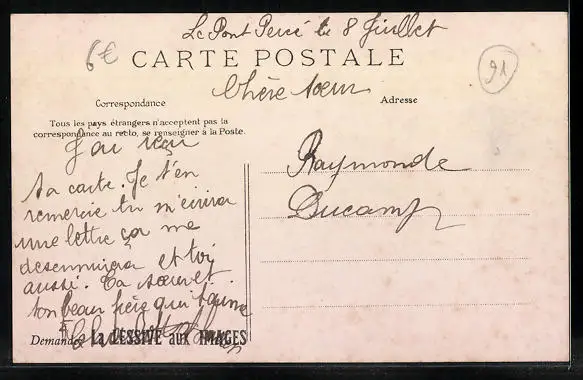 Le Pont Percé le 8 Juillet
6€
CARTE POSTALE
91
Chère sœur
Correspondance
Adresse
Tous les pays étrangers n'acceptent pas la
correspondance au recto, se renseigner à la Poste.
J'ai reçu
ta carte. Je t'en
remercie tu m'écrira
une lettre ça me
desennuira et toi
aussi. Ta sœur et
ton beau frère qui t'aime
Raymonde
Ducamp
Demandez la LESSIVE aux IMAGES